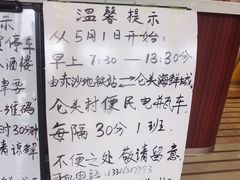 温馨提示
从5月1日开始:
早上7:30—13:30分
由赤沙地铁站
仑头海鲜城
仑头村便民电瓶车
每隔30分1班.
不便之处敬请留意
示
停车
酒楼
单要
维码
时30分钟
请谅解